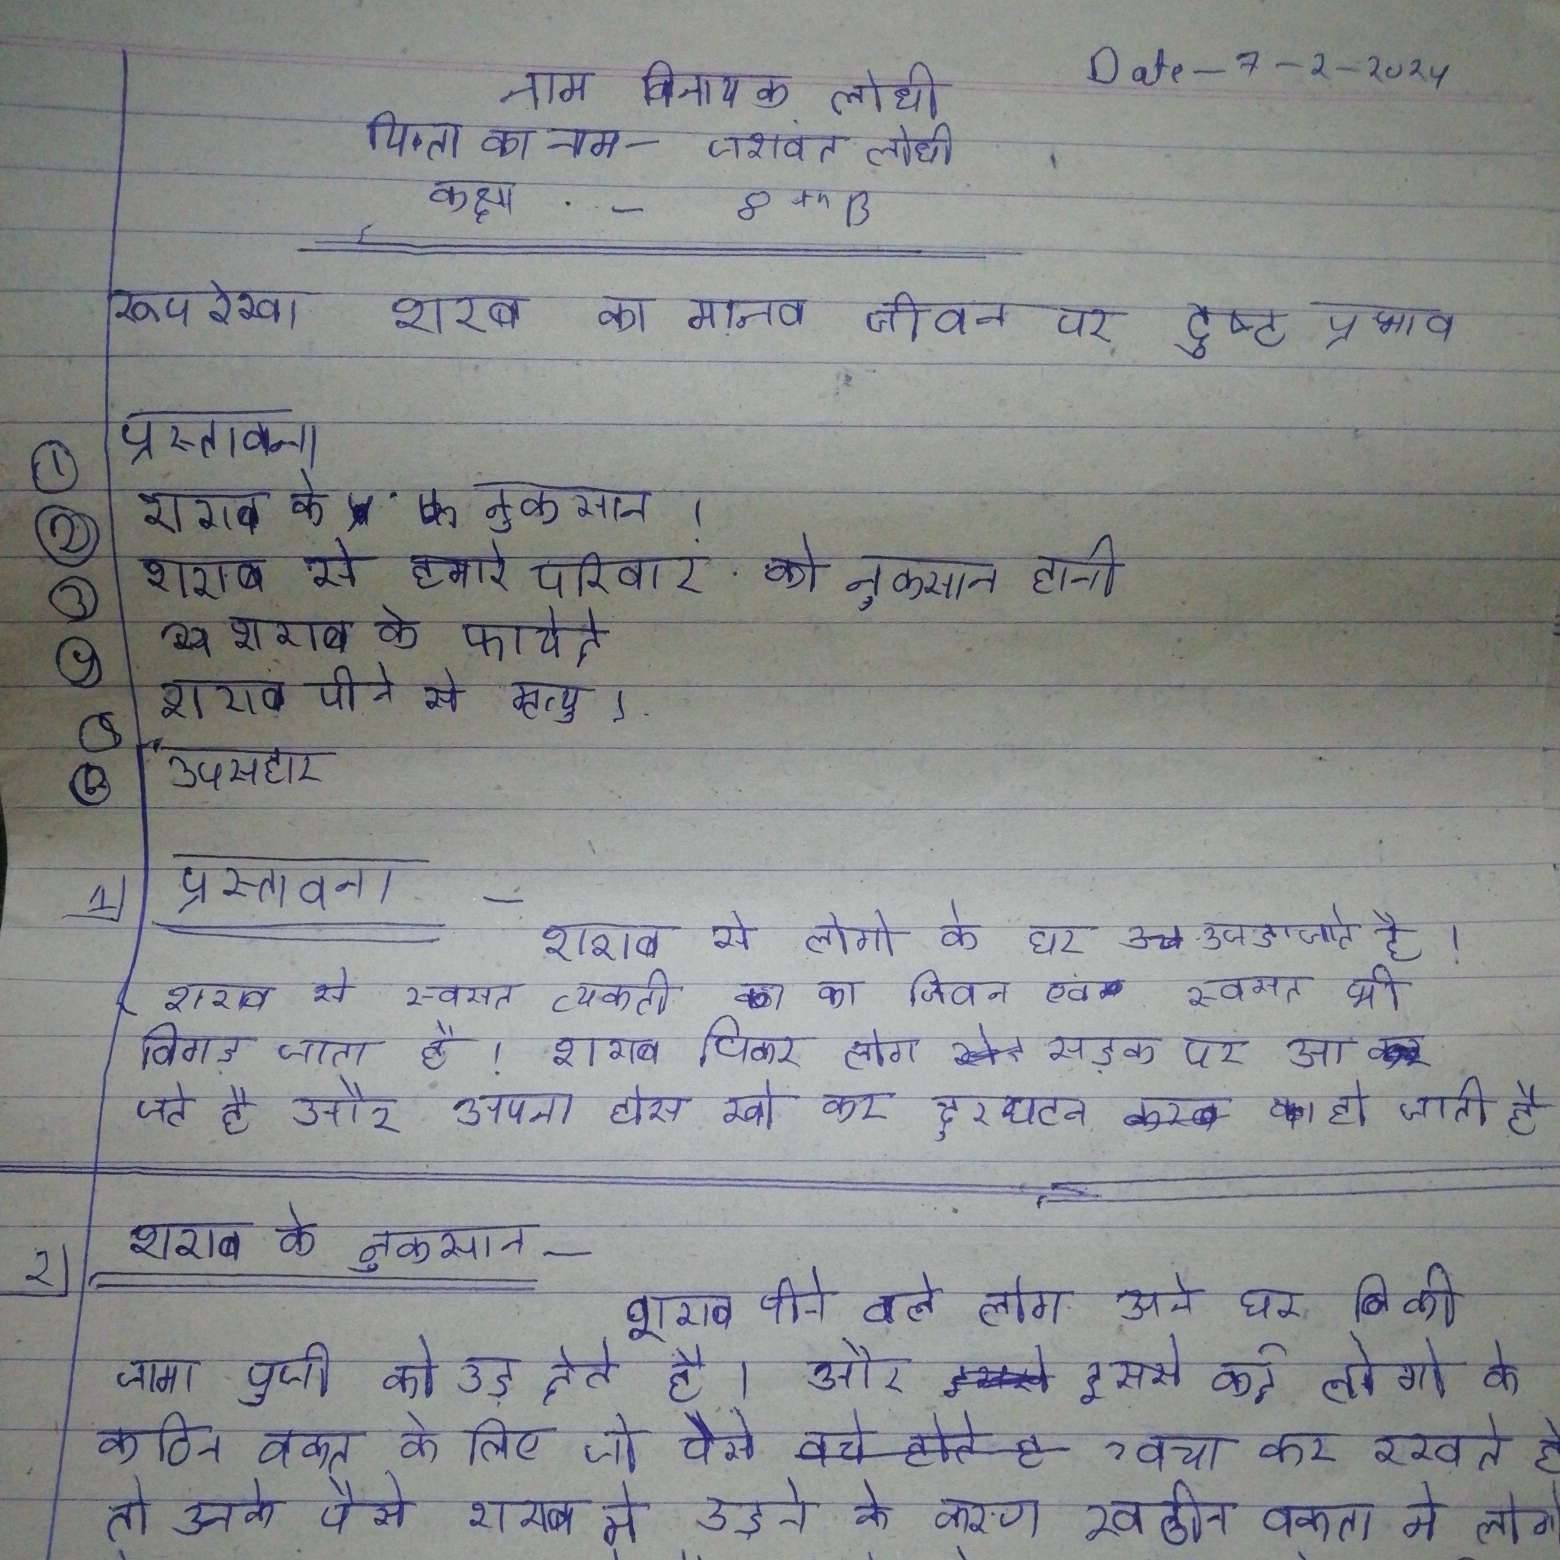 Date - 7 - 2 - 2024
नाम विनायक लोधी
पिता का नाम - जशवंत लोधी
कक्षा - 8th B
रूपरेखा शरब का मानव जीवन पर दुष्ट प्रभाव
प्रस्तावना
① शराब के नुकसान ।
② शराब से हमारे परिवार को नुकसान हानी
③ शराब के फायेदे
④ शराब पीने से मृत्यु ।
⑤
⑥ उपसहार
1) प्रस्तावना -
शराब से लोगो के घर उजडा जाते है ।
शराब से स्वसत व्यकती का जिवन एवं स्वसत भी
बिगड़ जाता है । शराब पिकर लोग सड़क पर आ
जते है और अपना होस खो कर दुरघटन हो जाती है
2) शराब के नुकसान -
शराब पीने वले लोग अने घर कि की
जामा पुजी को उड़ देते है । और इससे कई लोगो के
कठिन वकत के लिए जो पैसे बचा कर रखते है
तो उनके पैसे शराब मे उड़ने के करण खठीन वकता मे लोगो